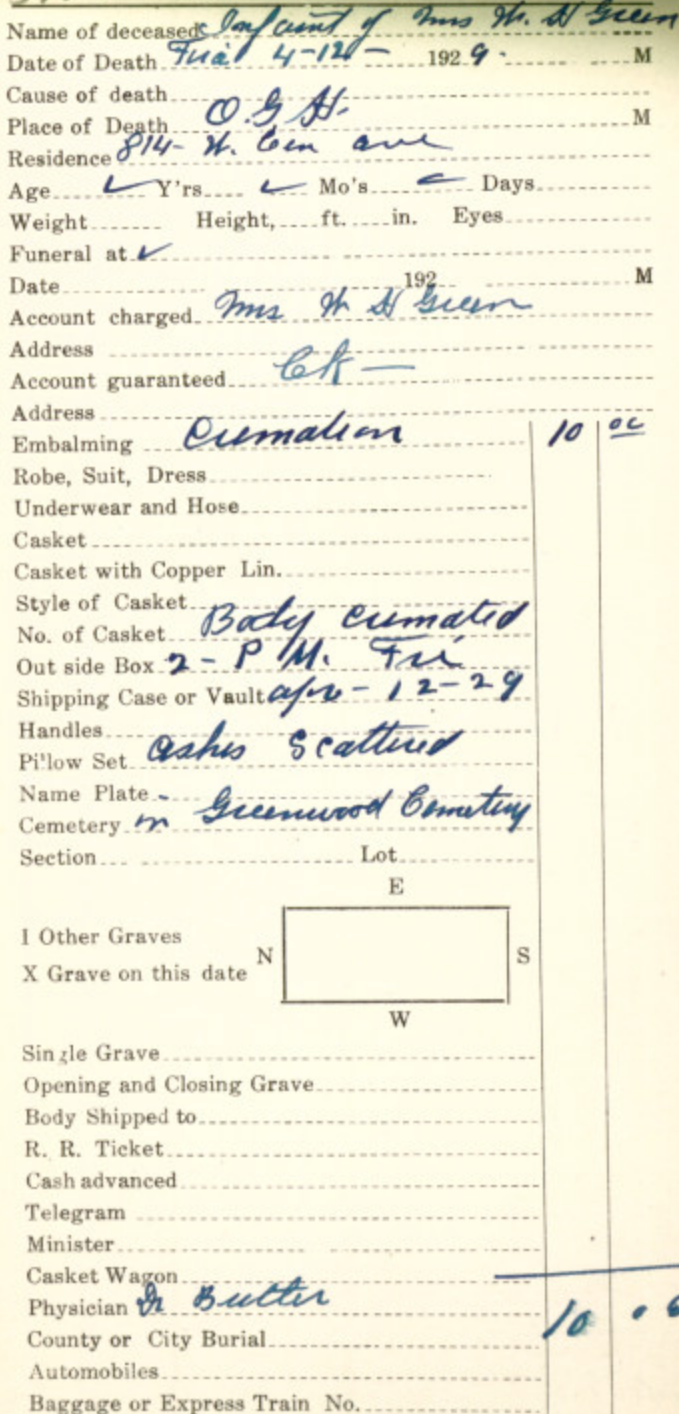 Name of deceased Infant of Mrs W. H Green
Date of Death Fri 4-12- 1929. M
Cause of death
Place of Death O. G H. M
Residence 814- W. Cen ave
Age ✓ Y'rs ✓ Mo's ✓ Days
Weight Height, ft. in. Eyes
Funeral at ✓
Date 192 M
Account charged Mrs W H Green
Address
Account guaranteed Ck —
Address
Embalming Cremation 10 00
Robe, Suit, Dress
Underwear and Hose
Casket
Casket with Copper Lin.
Style of Casket
No. of Casket Body cremated
Out side Box 2 - P M. Fri
Shipping Case or Vault apr - 12-29
Handles
Pi'low Set ashes Scattered
Name Plate -
Cemetery in Greenwood Cemetery
Section Lot
E
I Other Graves
N S
X Grave on this date
W
Single Grave
Opening and Closing Grave
Body Shipped to
R. R. Ticket
Cash advanced
Telegram
Minister
Casket Wagon
Physician Dr Butler
County or City Burial 10.0
Automobiles
Baggage or Express Train No.